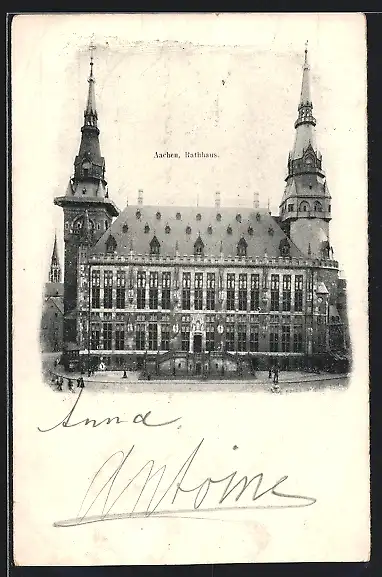 Aachen, Rathhaus.
Anna.
Antoine